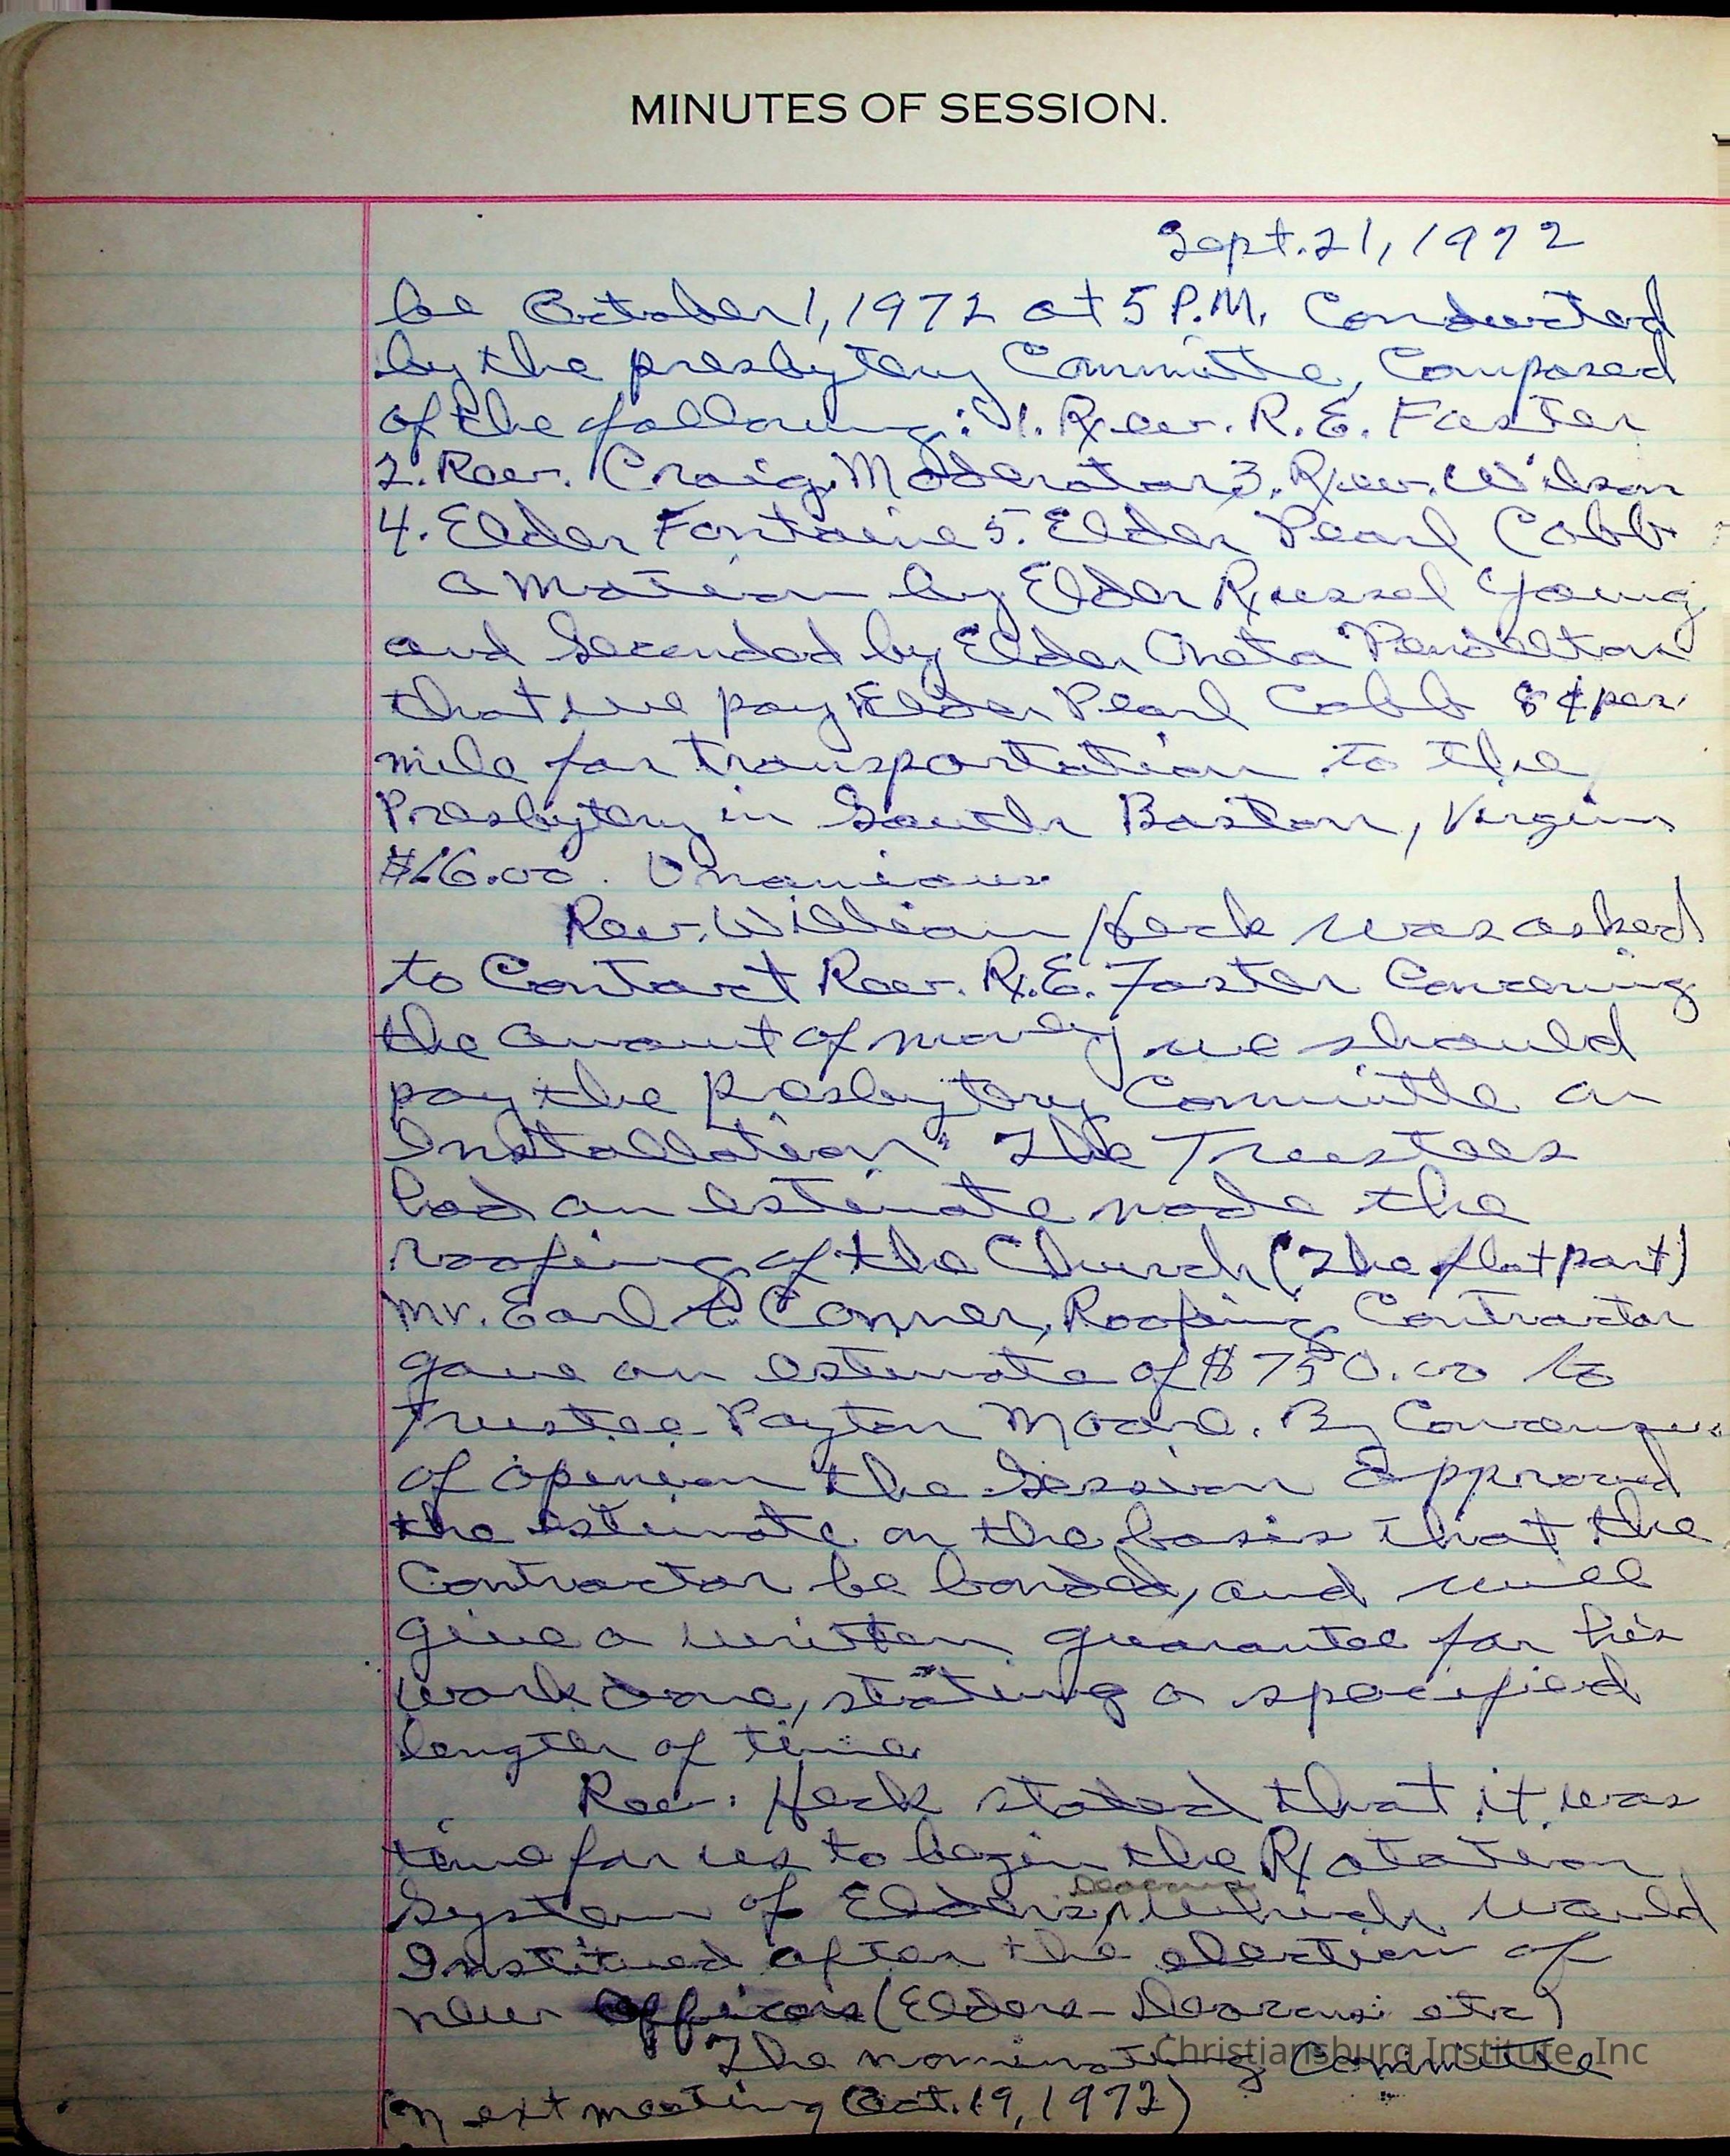 MINUTES OF SESSION.
Sept. 21, 1972
be October 1, 1972 at 5 P.M. Conducted
by the presbytery Committe, Composed
of the following: 1. Rev. R. E. Foster
2. Rev. Craig, Moderator 3. Rev. Wilson
4. Elder Fontaine 5. Elder Pearl Cobb
a motion by Elder Russel Young
and Seconded by Elder Oneta Pendelton
that we pay Elder Pearl Cobb 8 ¢ per
mile for transportation to the
Presbytery in South Boston, Virginia
$16.00. Unanious
Rev. William Heck was asked
to Contact Rev. R. E. Foster Concerning
the amount of money we should
pay the Presbytery Committe on
Installation. The Trustees
had an estimate made the
roofing of the Church (The flat part)
Mr. Earl Conner, Roofing Contractor
gave an estimate of $750.00 to
trustee Payton Moore. By
of openion the Session approved
the estimate on the basis that the
Contractor be bonded, and will
give a written guarantee for his
work done, stating a specified
length of time
Rev. Heck stated that it was
time for us to begin the Rotation
System of Elders, Deacons which would
Institued after the election of
new Officers (Elders - Deacons etc)
The nominating Committe
(Next meeting Oct. 19, 1972)
Christiansburg Institute, Inc